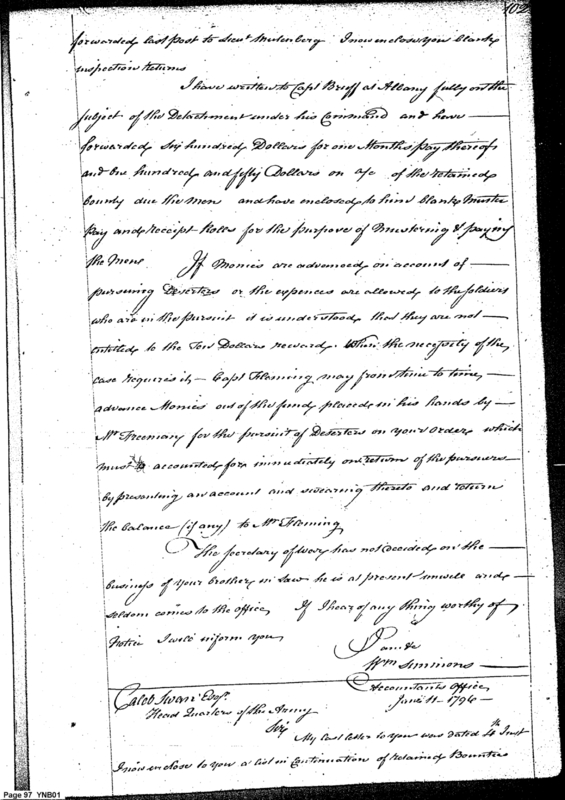 102
forwarded last post to Lieut Mulenberg I now enclose you blank
inspection returns
I have written to Capt Bruff at Albany fully on the
subject of the Detachment under his Command and have
forwarded six hundred Dollars for one Months pay thereof
and one hundred and fifty Dollars on a/c of the retained
bounty due the men and have enclosed to him blank Muster
Pay and receipt Rolls for the purpose of Mustering & paying
the Mens If Monies are advanced on account of
pursuing Deserters or the expences are allowed to the soldiers
who are in the pursuit it is understood that they are not
entitled to the Ten Dollars reward. When the necessity of the
case requires it, Capt Fleming may from time to time,
advance Monies out of the fund placed in his hands by
Mr Freeman for the pursuit of Deserters on your Order which
must be accounted for immediately on return of the pursuers
by presenting an account and swearing thereto and return
the balance (if any) to Mr Fleming
The Secretary of War has not decided on the
business of your brother in Law he is at present unwell and
seldom comes to the office, If I hear of any thing worthy of
Notice I will inform you
I am &c
Wm Simmons
Accountants Office
June 11 1796
Caleb Swan Esqr.
Head Quarters of the Army
Sir,
My last letter to you was dated 4th Inst
I now enclose to you a list in Continuation of retained Bounties
Page 97 YNB01